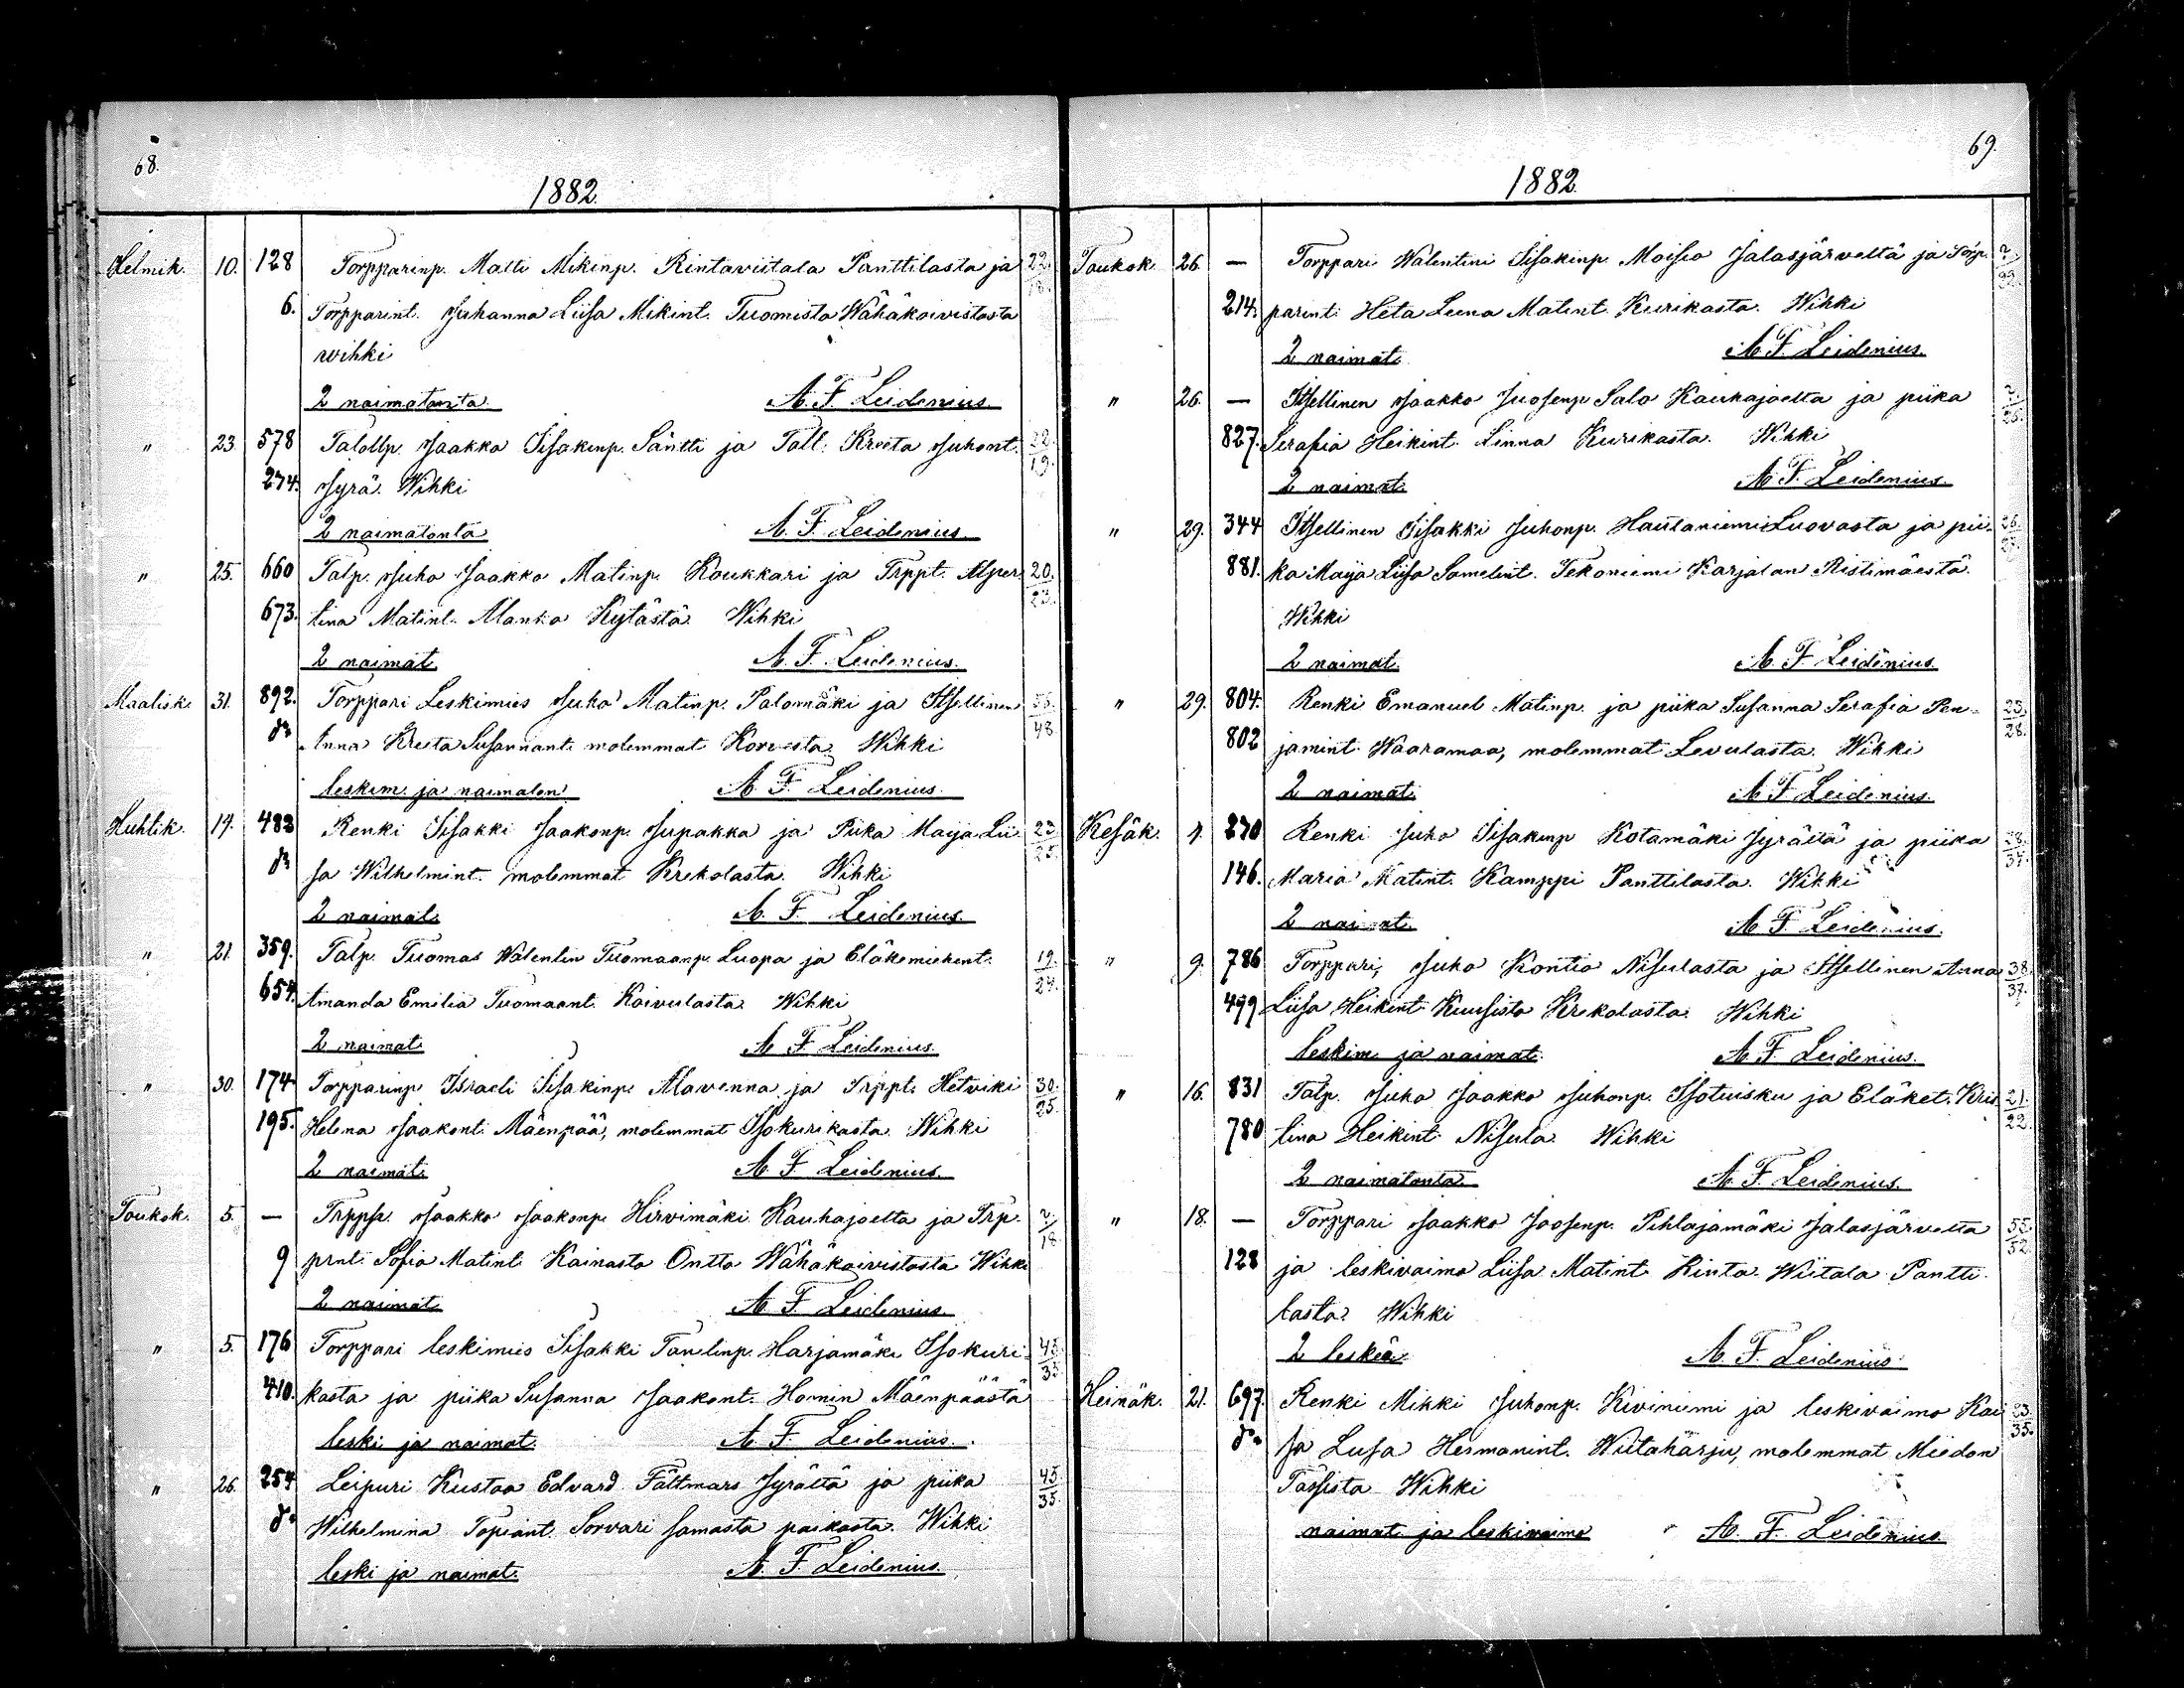 68.
1882.
Helmik. 10. 128 Torpparinp. Matti Mikinp. Rintaviitala Panttilasta ja 22.
6. Torpparint. Juhanna Liisa Mikint. Tuomista Wähäkoivistosta
wihki
2 naimatonta. A. F. Leidenius.
" 23. 578 Talollp. Jaakko Iisakinp. Säntti ja Tall. Kreeta Juhont. 22./19.
274. Jyrä. Wihki
2 naimatonta A. F. Leidenius.
" 25. 660 Talp. Juho Jaakko Matinp. Koukkari ja Trppt. Alper 20./23.
673. tina Matint. Alanko Kytästä. Wihki
2 naimat. A. F. Leidenius.
Maalisk. 31. 892. Torppari Leskimies Juho Matinp. Palomäki ja Itsellinen
do Anna Kreeta Susannant. molemmat Korvesta. Wihki 48
leskim. ja naimaton A. F. Leidenius.
Huhtik. 14. 483 Renki Iisakki Jaakonp. Jupakka ja Piika Maija Lii 23./25.
do sa Wilhelmint. molemmat Krekolasta. Wihki
2 naimat. A. F. Leidenius.
" 21. 359. Talp. Tuomas Walentin Tuomaanp. Luopa ja Eläkemiehent. 19./24.
654. Amanda Emilia Tuomaant. Koivulasta. Wihki
2 naimat. A. F. Leidenius.
" 30. 174 Torpparinp. Israeli Iisakinp. Alavenna ja Trppt. Hetviki 30./25.
195. Helena Jaakont. Mäenpää, molemmat Isokurikasta. Wihki
2 naimat. A. F. Leidenius.
Toukok. 5. — Trppr. Jaakko Jaakonp. Hirvimäki Kauhajoelta ja Trp. ?/18
9 prnt. Sofia Matint. Kainasto Ontto Wähäkoivistosta Wihki
2 naimat. A. F. Leidenius.
" 5. 176 Torppari leskimies Iisakki Tanelinp. Harjamäki Isokuri- 45./35.
410. kasta ja piika Susanna Jaakont. Homin Mäenpäästä
leski ja naimat. A. F. Leidenius.
" 26. 254 Leipuri Kustaa Edvard Fältmars Jyrältä ja piika 45./35.
do Wilhelmina Topiant. Sorvari samasta paikasta. Wihki
leski ja naimat. A. F. Leidenius.
69.
1882.
Toukok. 26. — Torppari Walentini Iisakinp. Moisio Jalasjärveltä ja Torp.
214. parint. Heta Leena Matint. Kurikasta. Wihki
2 naimat. A. F. Leidenius.
" 26. — Itsellinen Jaakko Juosenp. Salo Kauhajoelta ja piika
827. Serafia Heikint. Linna Kurikasta. Wihki
2 naimat. A. F. Leidenius.
" 29. 344 Itsellinen Iisakki Juhonp. Hautaniemi Luovasta ja pii-
881. ka Maija Liisa Samelint. Tekoniemi Karjalan Ristimäestä.
Wihki
2 naimat. A. F. Leidenius.
" 29. 804. Renki Emanuel Matinp. ja piika Susanna Serafia Pen- 23./28.
802 jamint. Waaramaa, molemmat Levulasta. Wihki
2 naimat. A. F. Leidenius.
Kesäk. 4. 270 Renki Juho Iisakinp. Kotamäki Jyrältä ja piika
146. Maria Matint. Kamppi Panttilasta. Wihki
2 naimat. A. F. Leidenius.
" 9. 786 Torppari, Juho Kontio Nisulasta ja Itsellinen Anna 38./37.
499 Liisa Heikint. Kuusisto Krekolasta. Wihki
leskim. ja naimat. A. F. Leidenius.
" 16. 831 Talp. Juho Jaakko Juhonp. Isotuisku ja Eläket. Kris 21./22.
780 tina Heikint. Nisula. Wihki
2 naimatonta. A. F. Leidenius.
" 18. — Torppari Jaakko Joosenp. Pihlajamäki Jalasjärveltä 55./52.
128 ja leskivaimo Liisa Matint. Rinta-Wiitala Pantti-
lasta. Wihki
2 leskeä. A. F. Leidenius.
Heinäk. 21. 697. Renki Mikki Juhonp. Kiviniemi ja leskivaimo Kai 23./35.
do sa Luisa Hermanint. Wiitaharju, molemmat Miedon
Tassista Wihki
naimat. ja leskivaimo A. F. Leidenius.